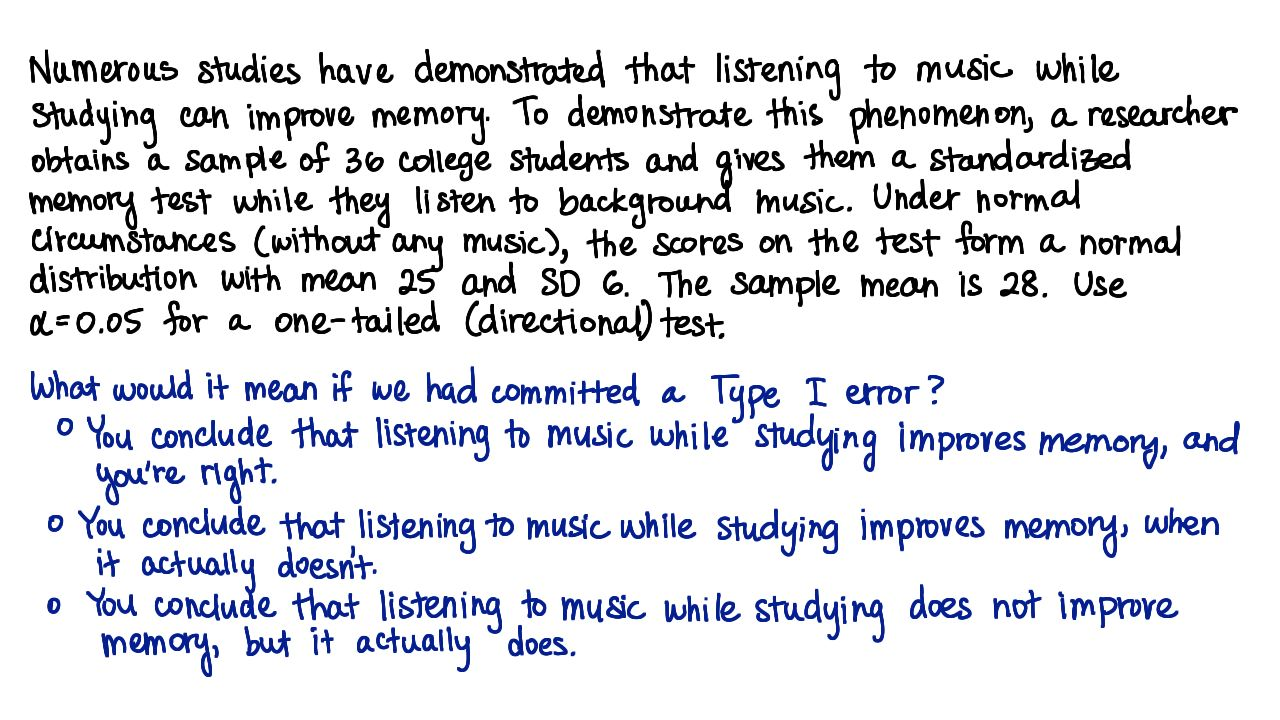 Numerous studies have demonstrated that listening to music while
studying can improve memory. To demonstrate this phenomenon, a researcher
obtains a sample of 36 college students and gives them a standardized
memory test while they listen to background music. Under normal
circumstances (without any music), the scores on the test form a normal
distribution with mean 25 and SD 6. The sample mean is 28. Use
α=0.05 for a one-tailed (directional) test.
What would it mean if we had committed a Type I error?
○ You conclude that listening to music while studying improves memory, and
you're right.
○ You conclude that listening to music while studying improves memory, when
it actually doesn't.
○ You conclude that listening to music while studying does not improve
memory, but it actually does.